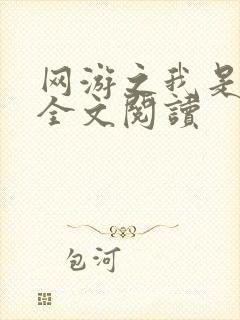 网游之我是
全文閱讀
包河